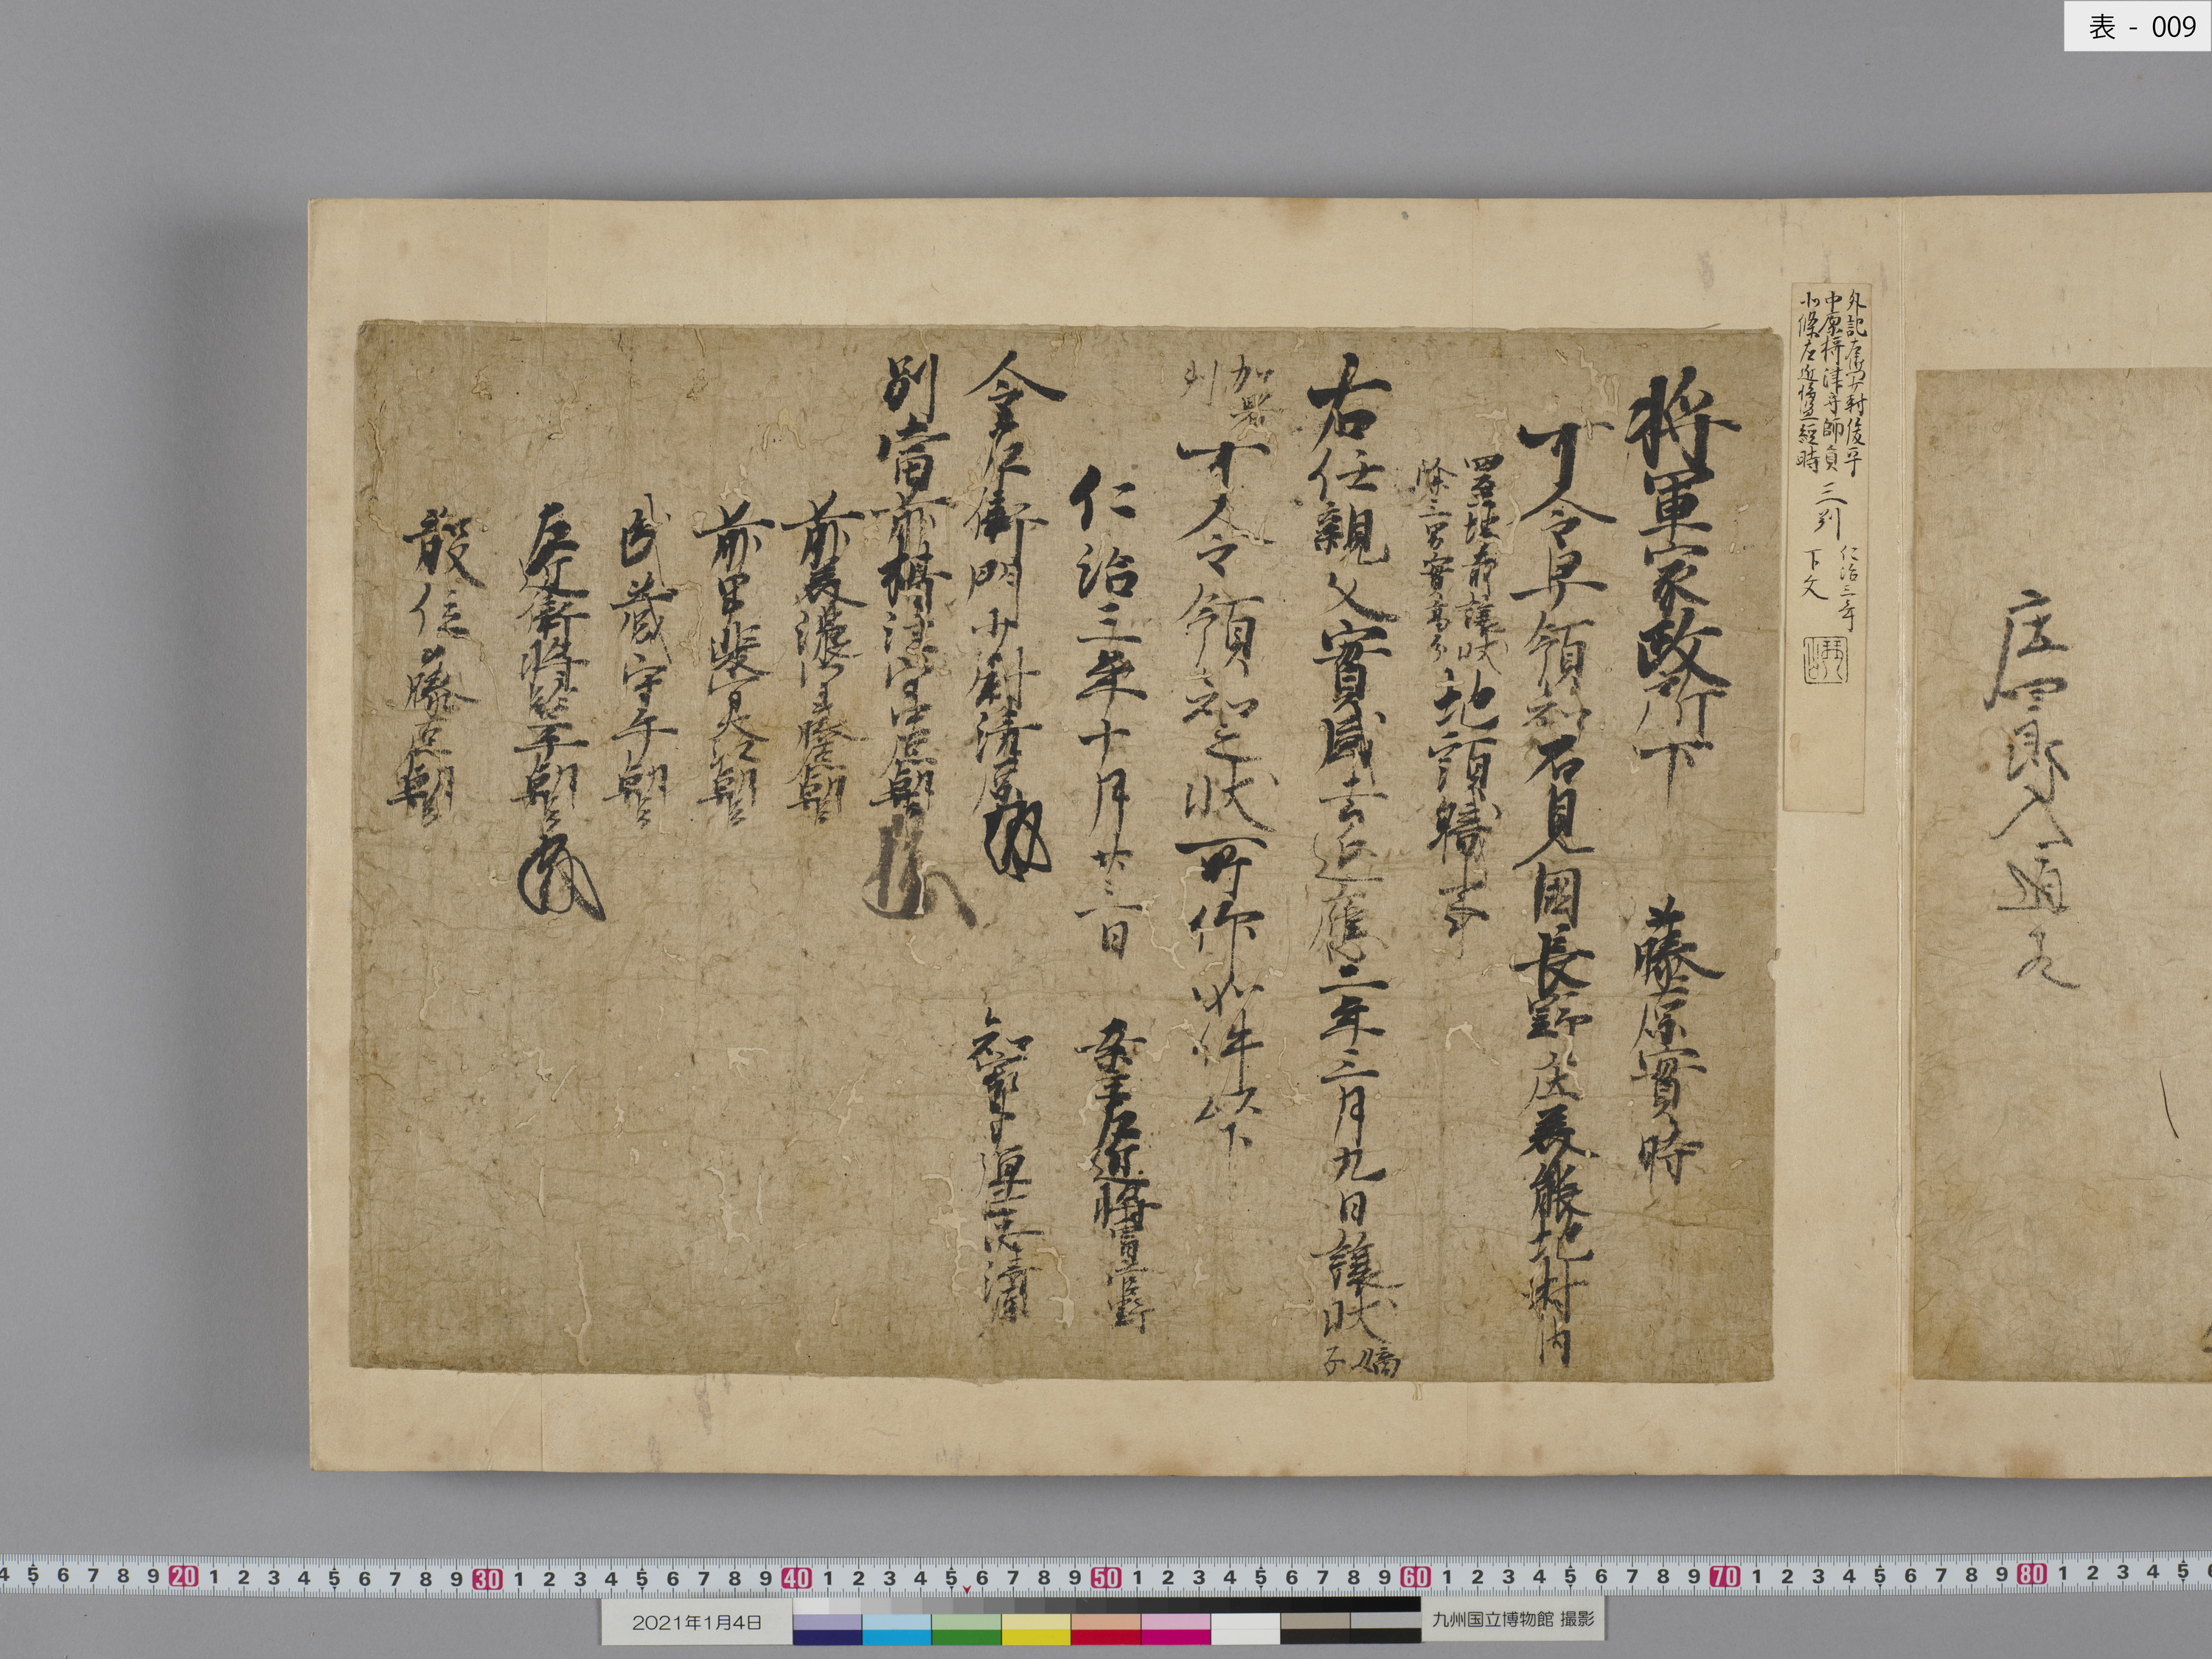 表 - 009
庄四郎入道丸
外記左衛門少尉俊平
中原摂津守師員
北條左近将監経時
三判
仁治三年
下文
将軍家政所下 藤原實時
可令早領知石見國長野庄美能地村内
四至堺有譲状
除二男實高分
地頭職事
右任親父實盛去延應二年三月九日譲状嫡子
加暑判
可令領知之状所仰如件以下
仁治三年十月廿三日 案主左近将曹菅野
令左衛門少尉清原 知家事弾正忠清原
別當前摂津守中原朝臣
前美濃守藤原朝臣
前甲斐守大江朝臣
武蔵守平朝臣
左近衛将監平朝臣
散位藤原朝臣
2021年1月4日
九州国立博物館 撮影